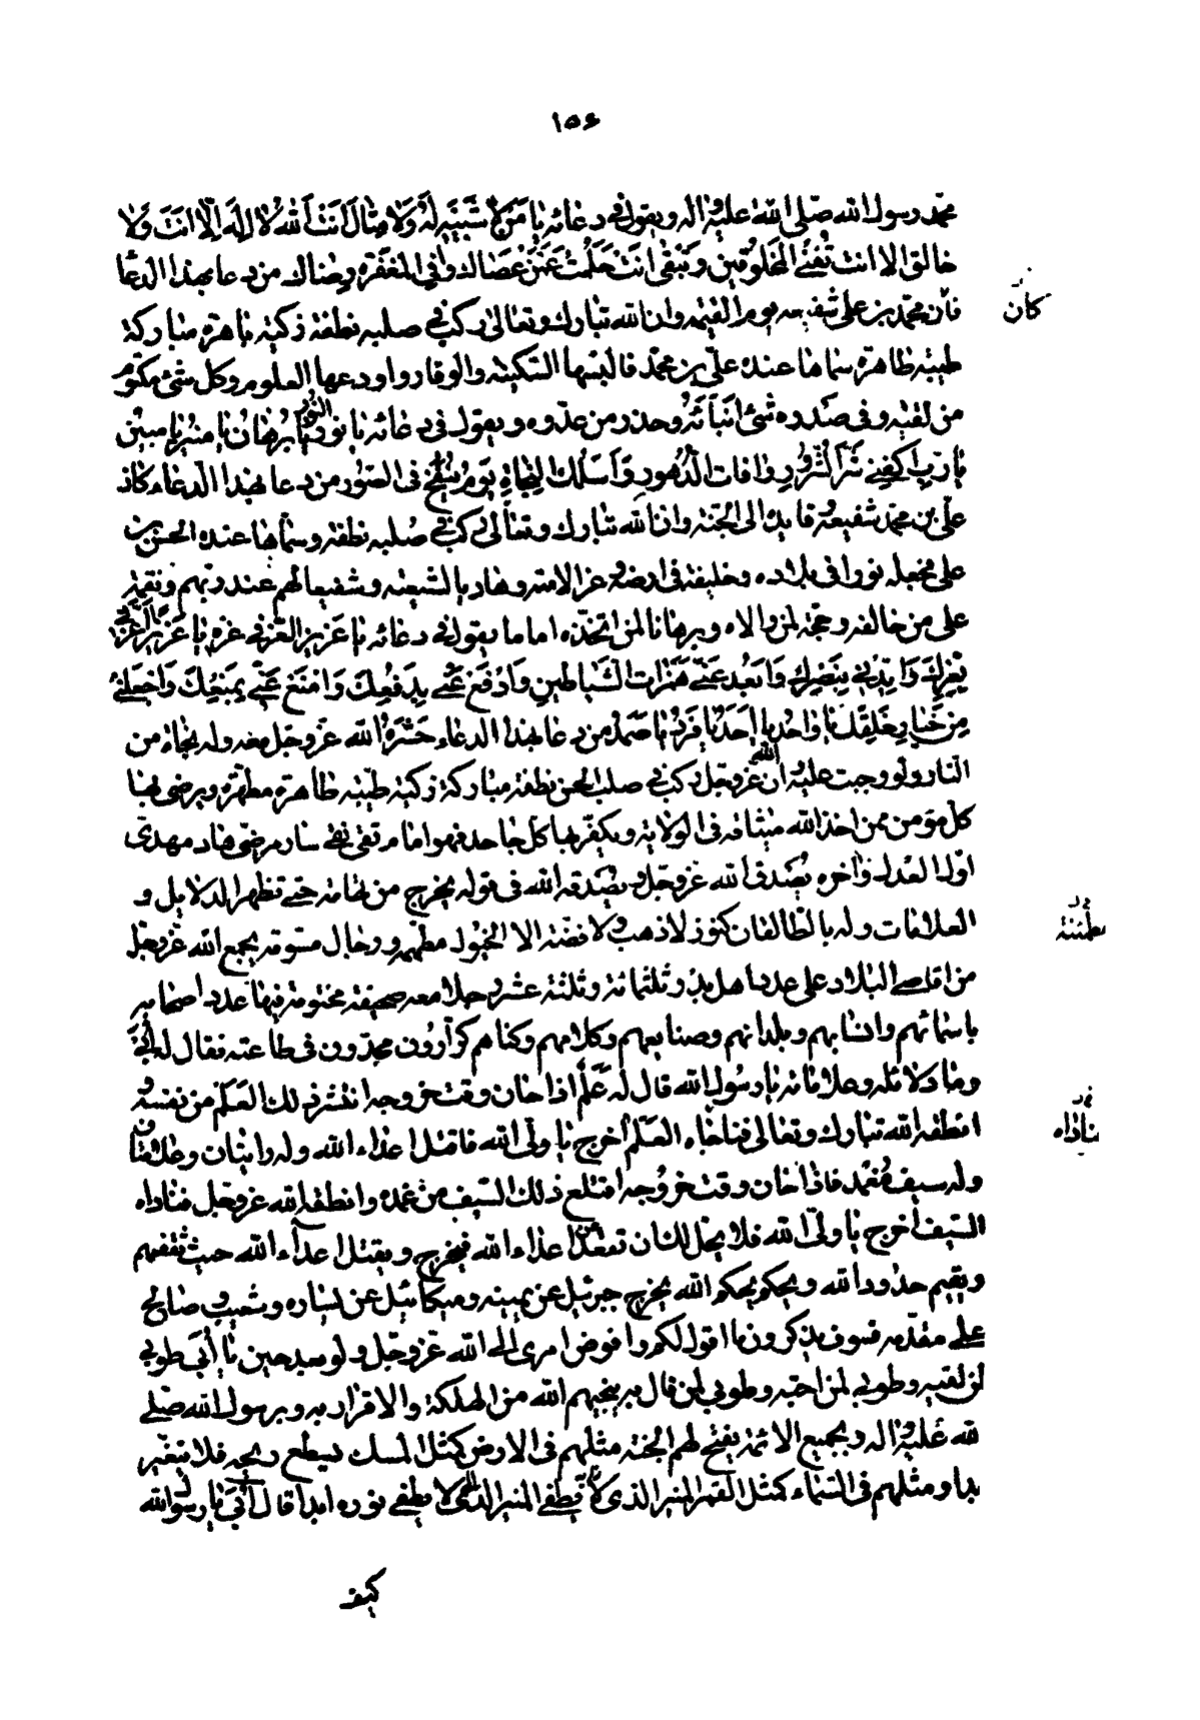 ١٥٤
محمد رسول الله صلى الله عليه واله ويقول في دعائه يا من لا شبيه له ولا مثال انت الله لا اله الا انت ولا
خالق الا انت تفني المخلوقين وتبقى انت حلمت عمن عصاك وفي المغفرة رضاك من دعا بهذا الدعا
فان محمد بن على شفيعه يوم القيمه وان الله تبارك وتعالى ركب في صلبه نطفة زكية باهرة مباركة
كان
طيبة طاهرة سماها عنده على بن محمد فالبسها السكينة والوقار واودعها العلوم وكل شئ مكتوم
من لقيه وفى صدره شئ انبأئه وحذر من عدوه ويقول في دعائه يا نور النور يا برهان يا منير يا مبين
يا رب اكفني شر الشرور وافات الدهور واسئلك النجاة يوم ينفخ في الصور من دعا بهذا الدعاء كان
على بن محمد شفيعه وقايده الى الجنة وان الله تبارك وتعالى ركب في صلبه نطفة وسماها عنده الحسن بن
على فجعله نورا في بلاده وخليفة في ارضه وعز الامته وهاديا لشيعته وشفيعا لهم عند ربهم ونقمة
على من خالفه وحجة لمن والاه وبرهانا لمن اتخذه اماما يقول في دعائه يا عزيز العز في عزه يا عزيز اعزني
بعزك وايدني بنصرك وابعد عنى همزات الشياطين وادفع عنى بدفعك وامنع عنى بمنعك واجعلني
من خيار خلقك يا واحد يا احد يا فرد يا صمد من دعا بهذا الدعاء حشره الله عز وجل معه وله نجاة من
النار ولو وجبت عليه وان الله عز وجل ركب في صلب الحسن نطفة مباركة زكية طيبة طاهرة مطهرة ويرضى بها
كل مؤمن ممن اخذ الله ميثاقه في الولاية ويكفر بها كل جاحد فهو امام تقى نقى سار مرضى هاد مهدى
اول العدل وآخره يصدق الله عز وجل ويصدقه الله في قوله يخرج من تهامة حتى تظهر الدلايل و
العلامات وله بالطالقان كنوز لا ذهب ولا فضة الا الخيول مطهمه ورجال مسومه يجمع الله عز وجل
من اقاصى البلاد على عدد اهل بدر وثلثمائة وثلثة عشر رجلا معه صحيفة مختومة فيها عدد اصحابه
باسمائهم وانسابهم وبلدانهم وصنايعهم وكلامهم وكناهم كرارون مجدون في طاعته فقال له ابي
وما دلائله وعلاماته يا رسول الله قال له علم اذا حان وقت خروجه انتشر ذلك العلم من نفسه و
انطقه الله تبارك وتعالى فناجاه العلم اخرج يا ولى الله فاقتل اعداء الله وله رايتان وعلامتان
ناداه
وله سيف مغمد فاذا حان وقت خروجه اقتلع ذلك السيف من غمده وانطقه الله عز وجل فناداه
السيف اخرج يا ولى الله فلا يحل لك ان تقعد عن اعداء الله فيخرج ويقتل اعداء الله حيث ثقفهم
ويقيم حدود الله ويحكم بحكم الله يخرج جبرئيل عن يمينه وميكائيل عن يساره وشعيب وصالح
على مقدمه فسوف يذكرون ما اقول لكم وافوض امرى الى الله عز وجل ولو بعد حين يا ابي طوبى
لمن لقيه وطوبى لمن احبه وطوبى لمن قال به ينجيهم الله من الهلكة والاقرار به وبرسول الله صلى
لله عليه واله وبجميع الائمة يفتح لهم الجنة مثلهم في الارض كمثل المسك يسطع ريحه فلا يتغير
بدا ومثلهم في السماء كمثل القمر المنير الذى لا يطفى نوره ابدا قال ابي يا رسول الله
كيف